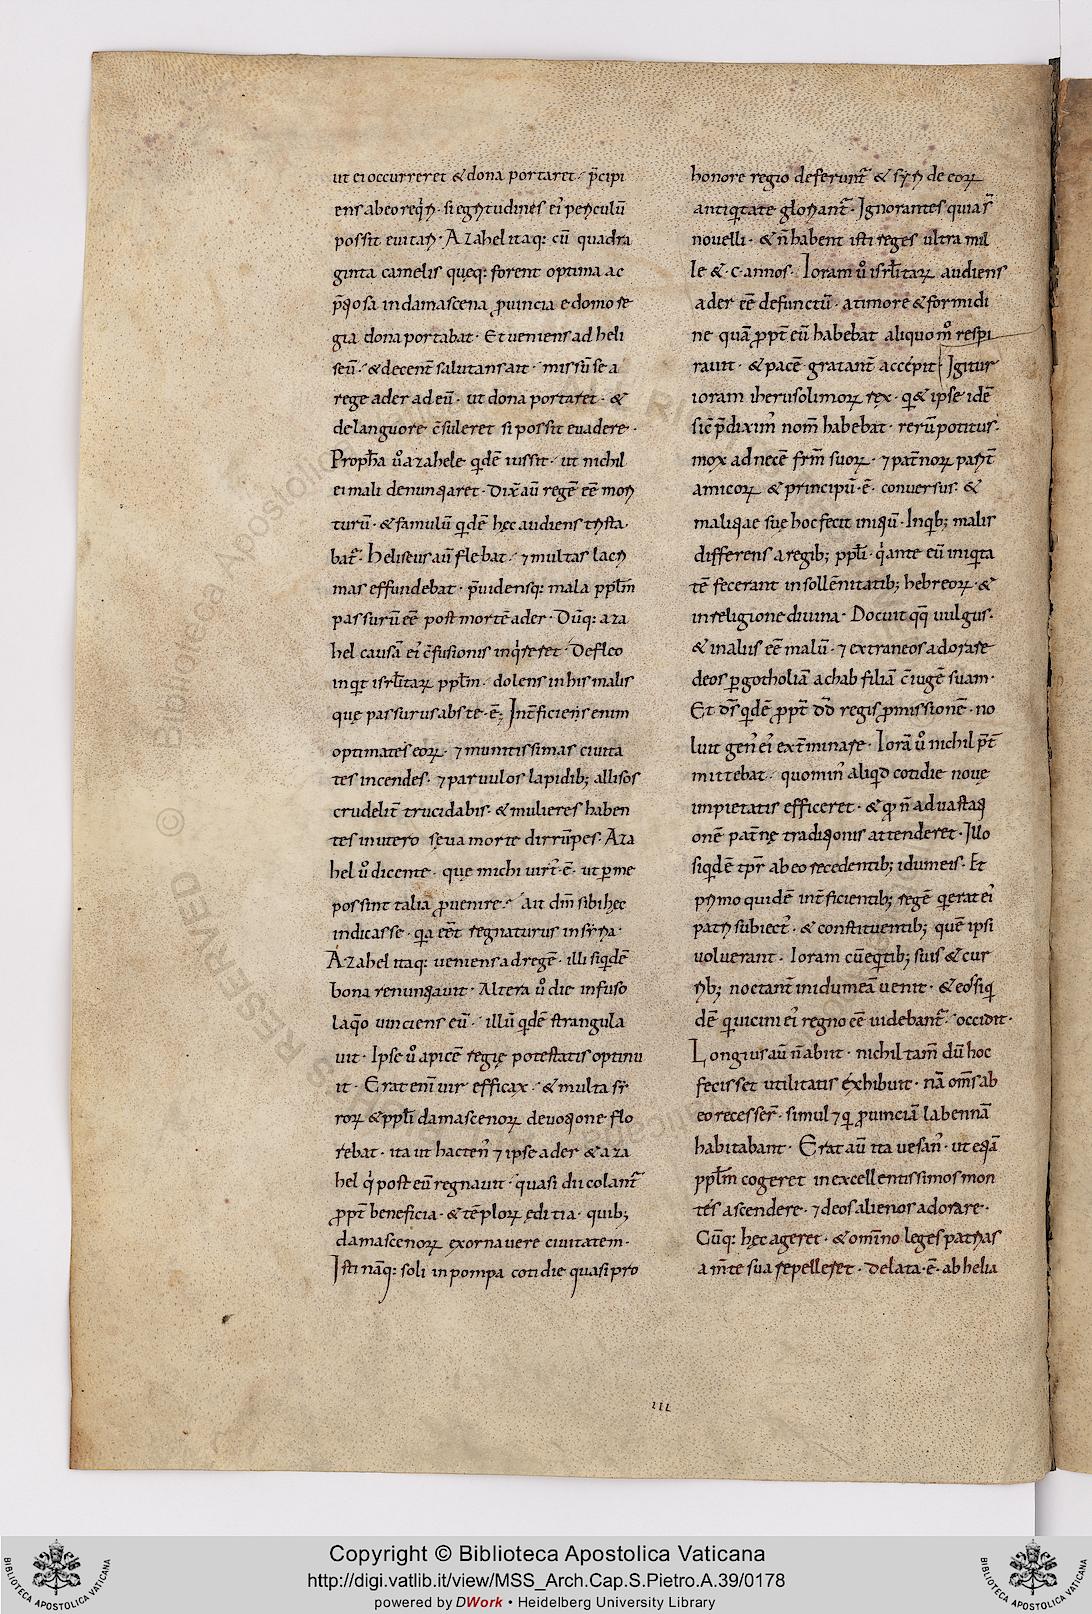 ut ei occurreret & dona portaret · p̄cipi
ens ab eo req̇ri · si egritudines ei᾿ periculū
possit euitari · Azahel itaq: cū quadra
ginta camelis quęq: forent optima ac
p̄ꝗosa in damascena ꝓuincia e domo re
gia dona portabat · Et ueniens ad heli
seū · & decent̄ salutans ait · missū se a
rege ader ad eū · ut dona portaret · &
de languore c̄suleret si possit euadere ·
Propħa ů azahele qͥdē iussit · ut nichil
ei mali denunꝗaret · Dix̄ aū regē eē mori
turū · & famulū qͥdē hęc audiens trista
bat᷑ · Heliseus aū flebat · ⁊ multas lacri
mas effundebat · p̄uidensq: mala ppl̄m
passurū eē post mortē ader · Dūq: aza
hel causā ei᾿ c̄fusionis inqͥreret · Defleo
inqͥt isrl̄itaꝝ ppl̄m · dolens in his malis
quę passurus abs te · ē; Int̄ficiens enim
optimates eoꝝ · ⁊ munitissimas ciuita
tes incendes · ⁊ paruulos lapidib; allisos
crudelit̄ trucidabis · & mulieres haben
tes in utero sęua morte dirrūpes · Aza
hel ů dicente · quę michi uirt᾿ · ē · ut p me
possint talia ꝓuenire · Ait dm̄ sibi hęc
indicasse · qͥa eēt regnaturus in syria ·
Azahel itaq: ueniens ad regē · illi siqͥdē
bona renunꝗauit · Altera ů die infuso
laq̄o uinciens eū · illū qͥdē strangula
uit · Ipse ů apicē regię potestatis optinu
it · Erat eni᷑ uir efficax · & multa sy
roꝝ & ppl̄i damascenoꝝ deuoꝗone flo
rebat · ita ut hacten᾿ ⁊ ipse ader & aza
hel qͥ post eū regnauit · quasi dii colant᷑
ꝓpt̄ beneficia · & tēploꝝ ędi tia · quib;
damascenoꝝ exornauere ciuitatem ·
Isti nāq: soli in pompa cotidie quasi pro
honore regio deferunt᷑ & syri de eoꝝ
antiqͥtate gloriant᷑ · Ignorantes quia s᷑
nouelli · & n̄ habent isti reges ultra mil
le & · c · annos · Ioram ů isrl̄itaꝝ audiens
ader eē defunctū · a timore & formidi
ne quā ꝓpt̄ eū habebat aliquo m̊ respi
rauit · & pacē gratant̄ accepit · Igitur
ioram iherusolimoꝝ rex · q & ipse idē
sic̄ p̄dixim᾿ nom̄ habebat · rerū potitus ·
mox ad necē fr̄m suoꝝ · ⁊ pat̄noꝝ parit̄
amicoꝝ & principū · ē · conuersus · &
maliꝗae suę hoc fecit iniꝗū · Inqͥb; malis
differens a regib; ppl̄i · qͥ ante eū iniqͥta
tē fecerant in sollēnitatib; hebreoꝝ · &
in religione diuina · Docuit qq̄ uulgus ·
& in aliis eē malū · ⁊ extraneos adorare
deos ꝑ gotholiā achab filiā c̄iugē suam ·
Et dn̄s qͥdē ꝓpt̄ dd̄ regis ꝓmissionē · no
luit gen᾿ ei᾿ ext̄minare · Iorā ů nichil p̄t̄
mittebat · quomin᾿ aliqͥd cotidie nouę
impietatis efficeret · & qͦ n̄ ad uastaꝗ
onē pat̄nę tradiꝗonis attenderet · Illo
siqͥdē tp̄r ab eo recedentib; idumeis · Et
primo quidē int̄ficientib; regē q erat ei᾿
patri subiect᾿ · & constituentib; quē ipsi
uoluerant · Ioram cū eqͥtib; suis & cur
rib; noctant̄ in idumeā uenit · & eos siqͥ
dē qͥ uicini ei᾿ regno eē uidebant᷑ · occidit ·
Longius aū n̄ abiit · nichil tam̄ dū hoc
fecisset utilitatis exhibuit · nā om̄s ab
eo recesser̄ · simul ⁊ qͥ ꝓuinciā labennā
habitabant · Erat aū ita uesan᾿ · ut eꝗā
ppl̄m cogeret in excellentissimos mon
tes ascendere · ⁊ deos alienos adorare ·
Cūq: hęc ageret · & omīno leges patrias
a m̄te sua repelleret · Delata · ē · ab helia
III
Copyright © Biblioteca Apostolica Vaticana
http://digi.vatlib.it/view/MSS_Arch.Cap.S.Pietro.A.39/0178
powered by DWork • Heidelberg University Library